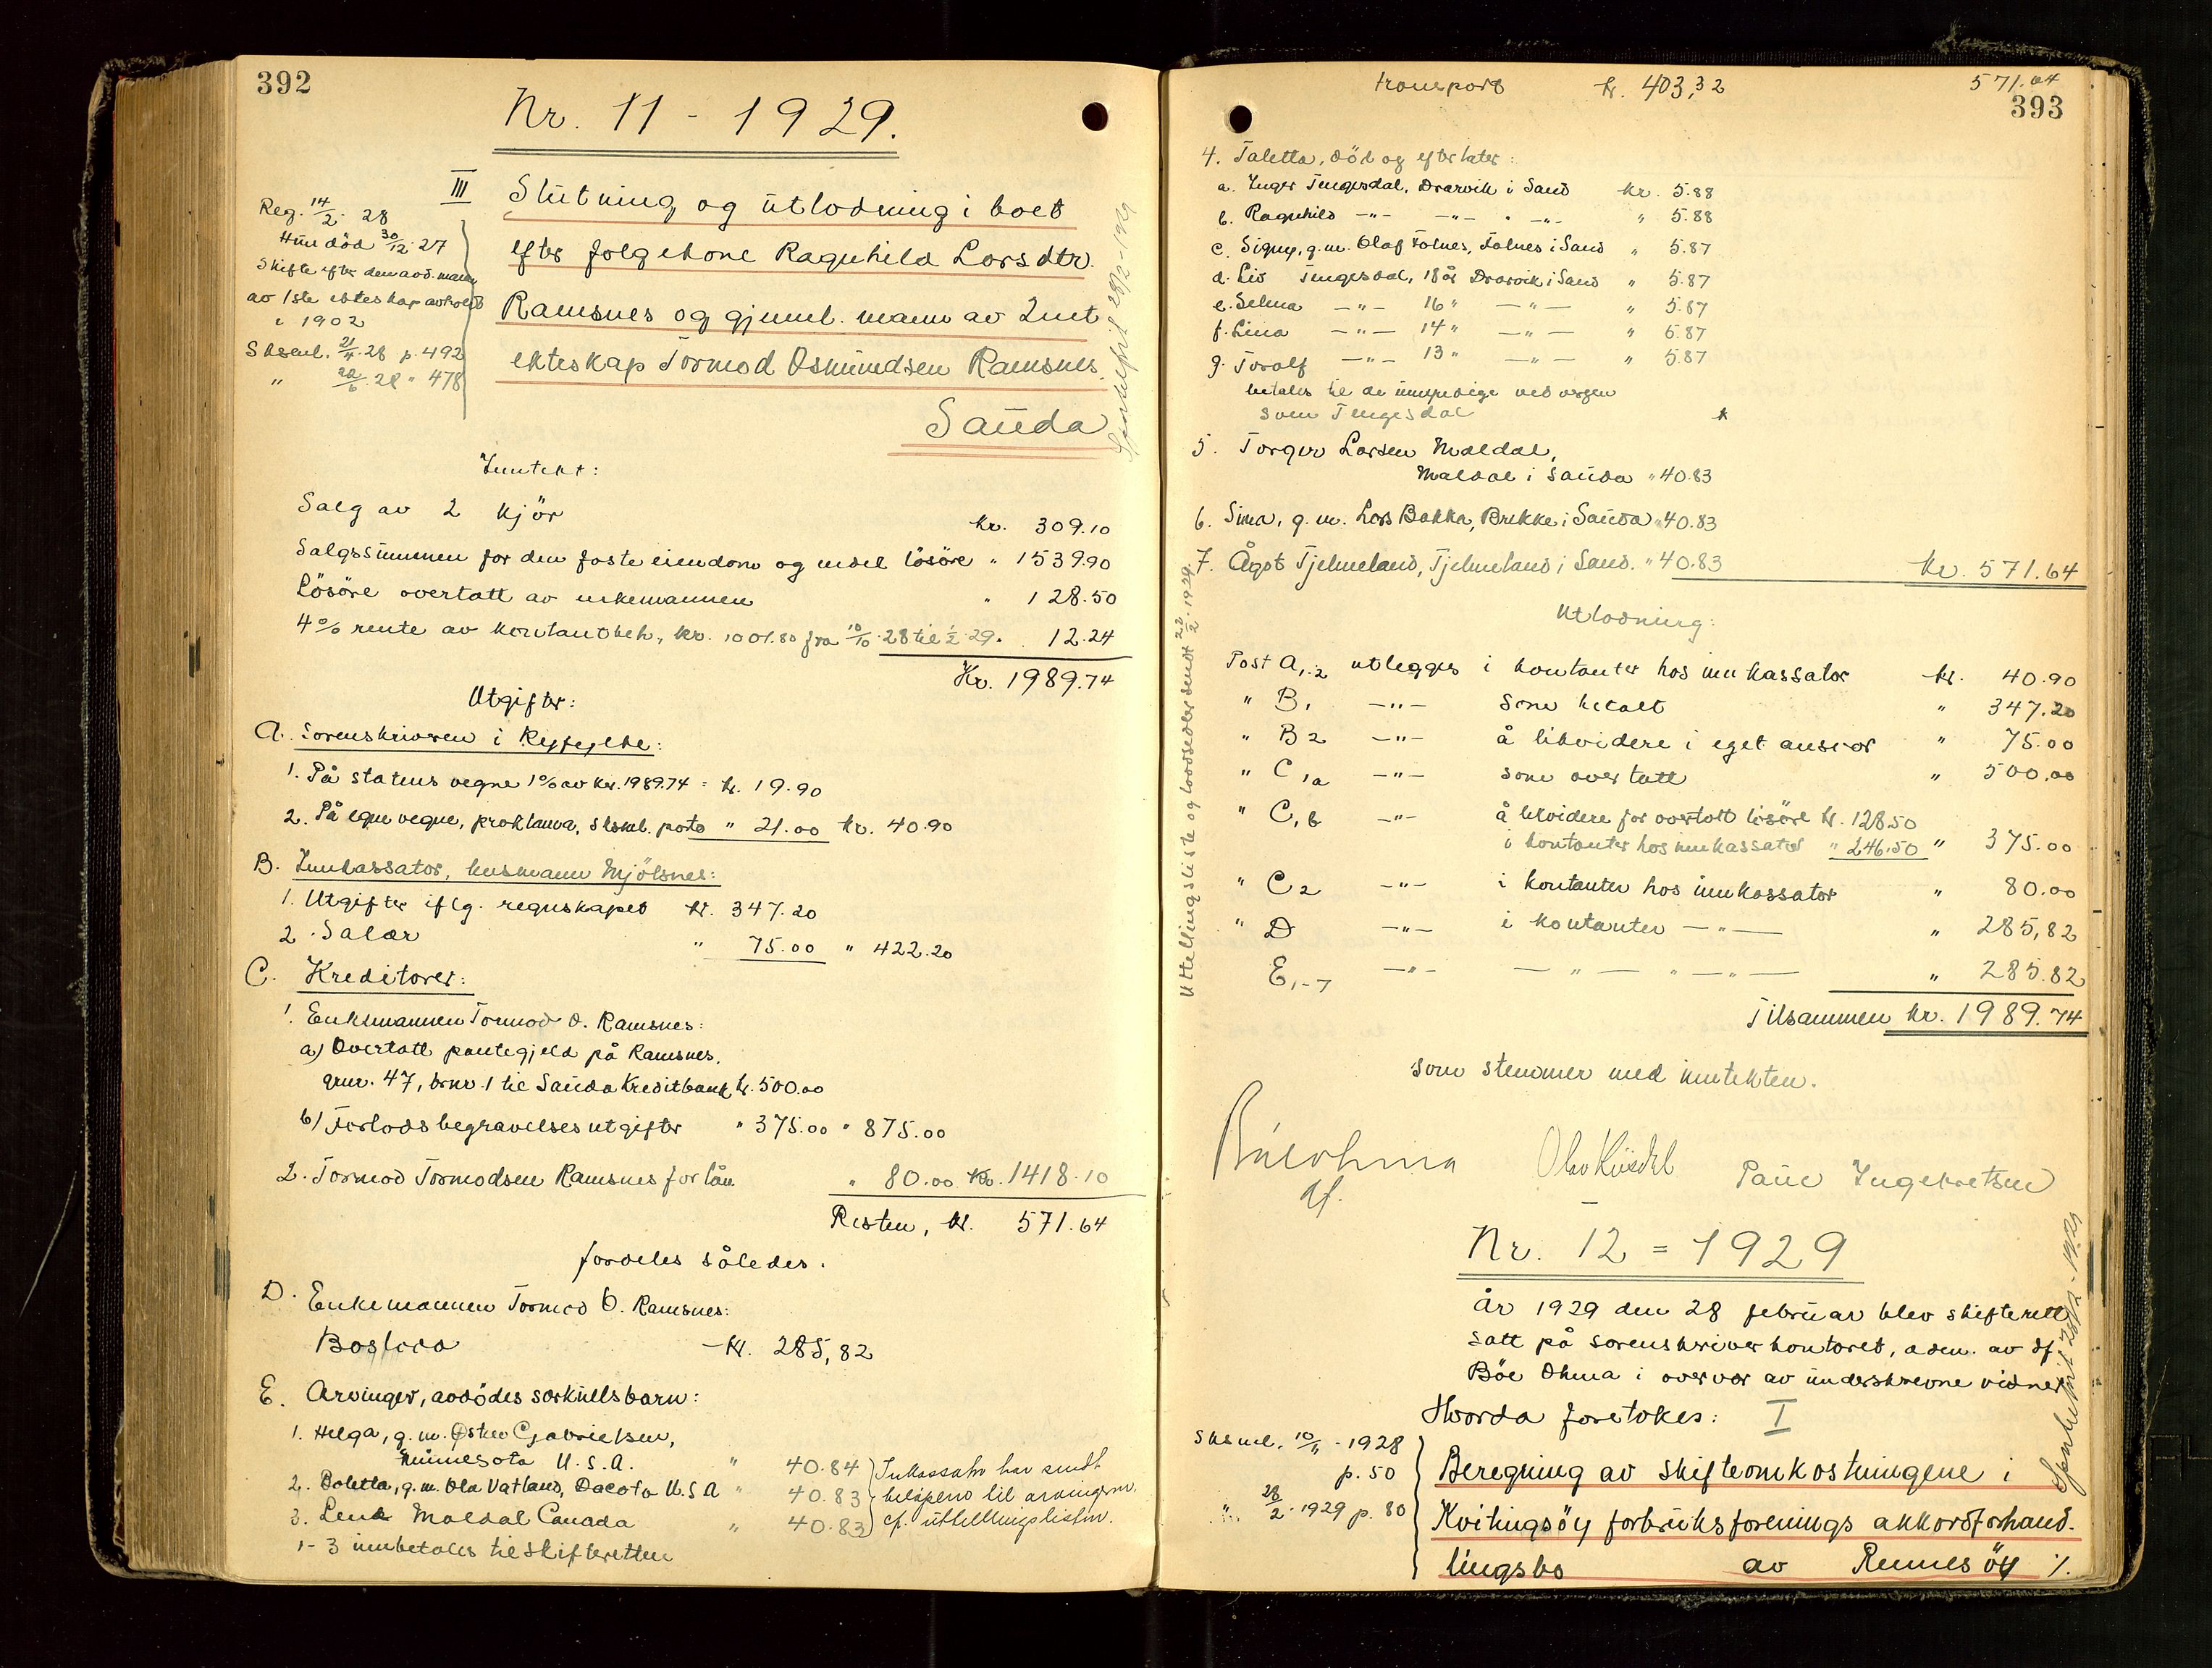 392
Nr. 11 - 1929.
III
Reg. 14/2. 28
Hun død 30/12. 27
Skifte efter dennes avd. mann
av 1ste ekteskap avholdt
i 1902
Sksml. 21/4. 28 p. 492
" 22/6. 28 " 478
Slutning og utlodning i boet
efter folgekone Ragnhild Larsdtr.
Ramsnes og gjenml. mann av 2net
ekteskap Tormod Osmundsen Ramsnes,
Sauda
Gjenbefnit 28/2-1929
Inntekt:
Salg av 2 kjör kr. 309.10
Salgssummen for den faste eiendom og endel lösöre " 1539.90
Lösöre overtatt av enkemannen " 128.50
4% rente av kontantbeh., kr. 1001.80 fra 10/10.28 til 1/2.29. . 12.24
Kr. 1989.74
Utgifter:
A. Sorenskriveren i Ryfylke:
1. På statens vegne 1% av kr. 1989.74 = kr. 19.90
2. På egne vegne, proklama, sksml. porto " 21.00 kr. 40.90
B. Innkassator, lensmann Mjölsnes:
1. Utgifter iflg. regnskapet kr. 347.20
2. Salær " 75.00 " 422.20
C. Kreditorer:
1. Enkemannen Tormod O. Ramsnes:
a) Overtatt pantegjeld på Ramsnes,
gnr. 47, brnr. 1 til Sauda Kreditbank kr. 500.00
b) Forlods begravelsesutgifter " 375.00 " 875.00
2. Tormod Tormodsen Ramsnes for lån " 80.00 Kr. 1418.10
Resten, kr. 571.64
fordeles således.
D. Enkemannen Tormod O. Ramsnes:
Boslod - kr. 285,82
E. Arvinger, avdödes særkullsbarn:
1. Helga, g.m. Østen Gabrielsen,
Minnesota U.S.A. " 40.84
2. Boletta, g.m. Ola Vatland, Dacota U.S.A " 40.83
3. Lene Maldal Canada " 40.83
Inkassator har sendt
beløpene til arvingene.
cf. uttellingslisten.
1-3 innbetales til skifteretten
393
transport kr. 403,32 571.64
4. Taletta, död og efterlater:
a. Inger Tengesdal, Drarvik i Sand kr. 5.88
b. Ragnhild -"- -"- " -"- " 5.88
c. Signy, g.m. Olaf Fatnes, Fatnes i Sand " 5.87
d. Liv Tengesdal, 18 år Drarvik i Sand " 5.87
e. Selma -"- 16 " -"- " 5.87
f. Lina -"- 14 " -"- " 5.87
g. Toralf -"- 13 " -"- " 5.87
betales til de umyndige ved vergen
Sven Tengesdal
5. Torger Larsen Maldal,
Maldal i Sauda " 40.83
6. Sina, g.m. Lars Bakka, Brekke i Sauda " 40.83
7. Ågot Tjelmeland, Tjelmeland i Sand. " 40.83 kr. 571.64
Uttellingsliste og loddsedler sendt 22/2.1929.
Utlodning:
Post A,1-2 utlegges i kontanter hos innkassator kr. 40.90
" B1 -"- som betalt " 347.20
" B2 -"- å likvidere i eget ansvar " 75.00
" C1a -"- som overtatt " 500.00
" C1b -"- å likvidere for overtatt lösöre kr. 128.50
i kontanter hos innkassator " 246.50 " 375.00
" C2 -"- i kontanter hos innkassator " 80.00
" D -"- i kontanter -"- " 285,82
E,1-7 -"- - " - " - " - " 285.82
Tilsammen kr. 1989.74
som stemmer med inntekten.
Böe Ohma
df.
Paul Ingebretsen
Nr. 12 = 1929
År 1929 den 28 februar blev skifterett
satt på sorenskriverkontoret, adm. av df.
Böe Ohma i overvær av underskrevne vidner
Hvorda foretokes: I
Sksml. 10/11 - 1928
p. 50
" 28/2. 1929 p. 80
Beregning av skifteomkostningene i
Kvitingsöy forbruksforenings akkordforhand-
lingsbo av Rennesöy ./.
Gjenbefnit 28/2-1929